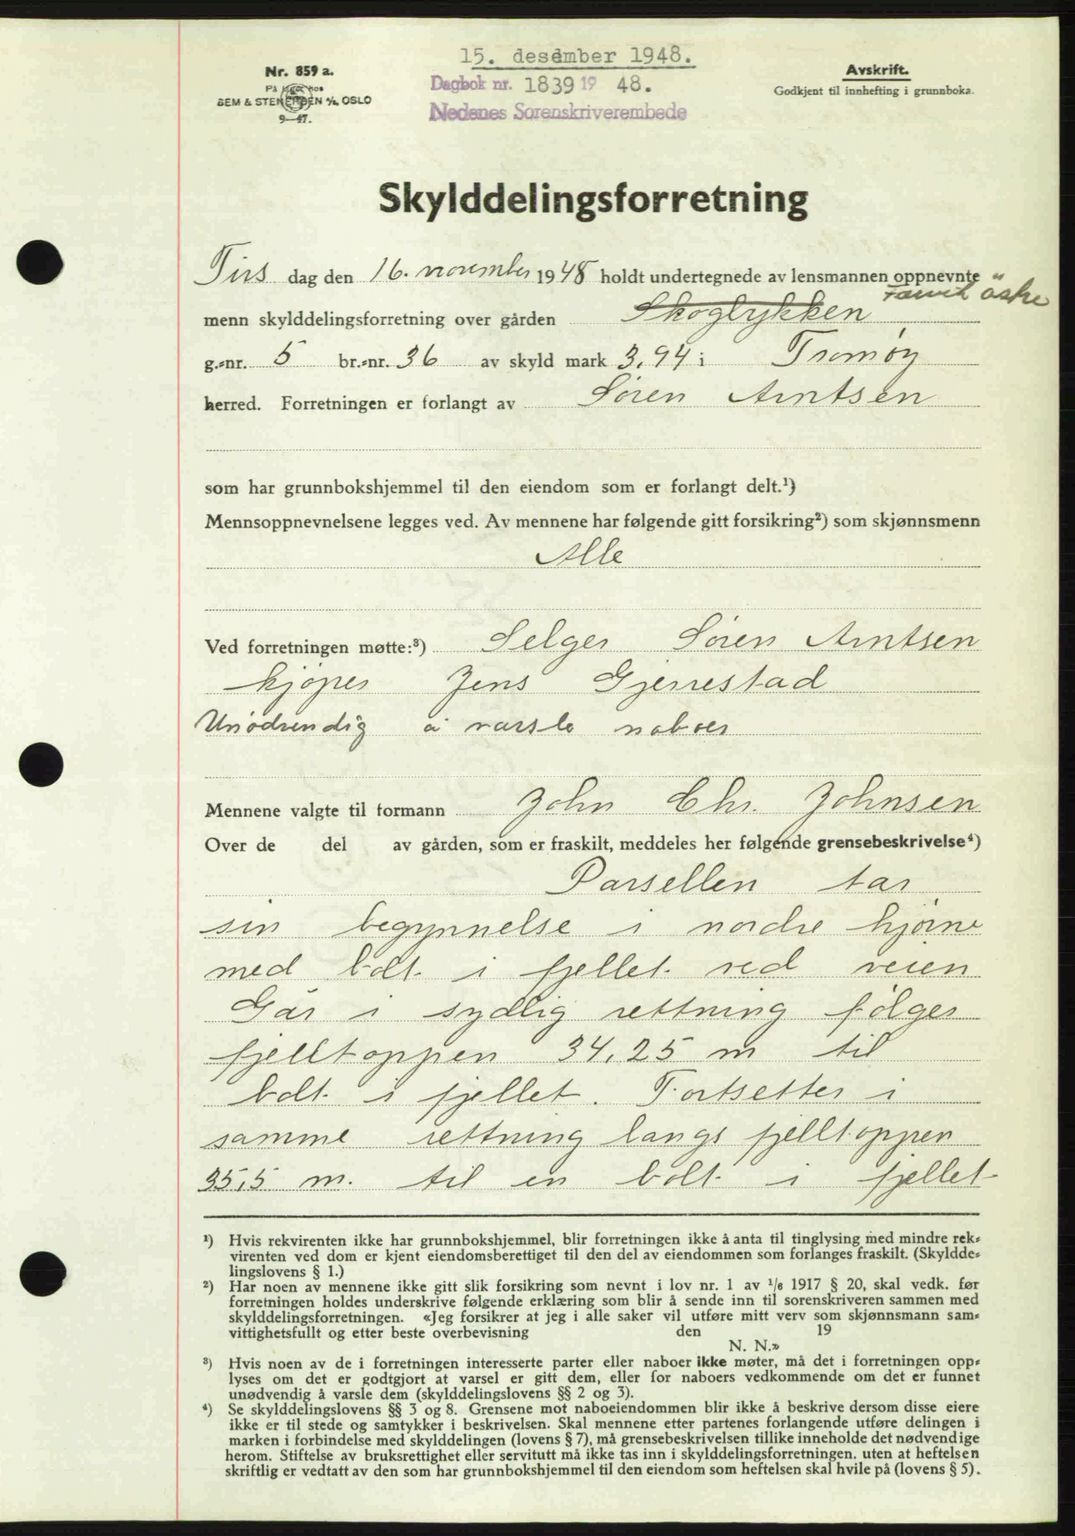 15. desember 1948.
Nr. 859 a.
På lager hos
SEM & STENERSEN A/S, OSLO
9—47.
Dagbok nr. 1839 19 48.
Nedenes Sorenskriverembede
Avskrift.
Godkjent til innhefting i grunnboka.
Skylddelingsforretning
Tirs dag den 16. november 1948 holdt undertegnede av lensmannen oppnevnte
menn skylddelingsforretning over gården Skogbrykken
g.-nr. 5 br.-nr. 36 av skyld mark 3,94 i Tromøy
herred. Forretningen er forlangt av Søren Arntsen
som har grunnbokshjemmel til den eiendom som er forlangt delt.¹)
Mennsoppnevnelsene legges ved. Av mennene har følgende gitt forsikring²) som skjønnsmenn
Alle
Ved forretningen møtte:³) Selger Søren Arntsen
kjøper Jens Gjerrestad
Unødvendig å varsle naboer
Mennene valgte til formann John Chr. Johnsen
Over de del av gården, som er fraskilt, meddeles her følgende grensebeskrivelse⁴)
Parsellen tar
sin begynnelse i nordre hjørne
med bolt i fjellet ved veien
Går i sydlig rettning følger
fjelltoppen 34,25 m til
bolt i fjellet. Fortsetter i
samme rettning langs fjelltoppen
35,5 m. til en bolt i fjellet
¹) Hvis rekvirenten ikke har grunnbokshjemmel, blir forretningen ikke å anta til tinglysing med mindre rek-
virenten ved dom er kjent eiendomsberettiget til den del av eiendommen som forlanges fraskilt. (Skyldde-
lingslovens § 1.)
²) Har noen av mennene ikke gitt slik forsikring som nevnt i lov nr. 1 av ¹/₆ 1917 § 20, skal vedk. før
forretningen holdes underskrive følgende erklæring som blir å sende inn til sorenskriveren sammen med
skylddelingsforretningen. «Jeg forsikrer at jeg i alle saker vil utføre mitt verv som skjønnsmann sam-
vittighetsfullt og etter beste overbevisning den 19
N. N.»
³) Hvis noen av de i forretningen interesserte parter eller naboer ikke møter, må det i forretningen opp-
lyses om det er godtgjort at varsel er gitt dem, eller for naboers vedkommende om det er funnet
unødvendig å varsle dem (skylddelingslovens §§ 2 og 3).
⁴) Se skylddelingslovens §§ 3 og 8. Grensene mot naboeiendommen blir ikke å beskrive dersom disse eiere
ikke er til stede og samtykker i beskrivelsen. Skal mennene etter partenes forlangende utføre delingen i
marken i forbindelse med skylddelingen (lovens § 7), må grensebeskrivelsen tillike inneholde det nødvendige
herom. Stiftelse av bruksrettighet eller servitutt må ikke tas inn i skylddelingsforretningen, uten at heftelsen
skriftlig er vedtatt av den som har grunnbokshjemmel til den eiendom som heftelsen skal hvile på (lovens § 5).